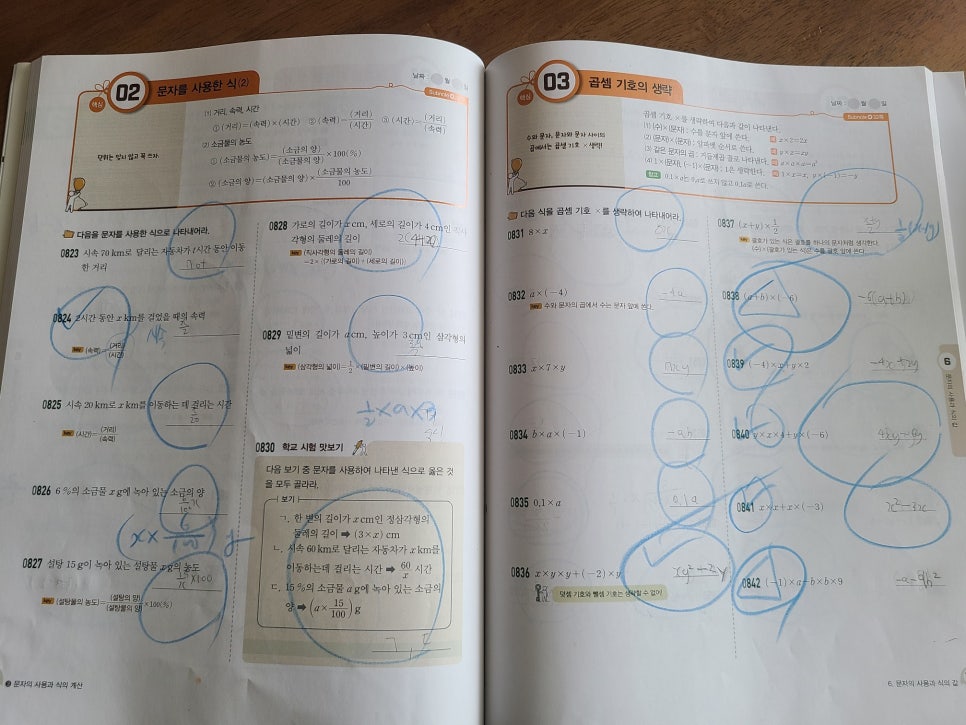 핵심 02 문자를 사용한 식(2)
날짜 월 일
단위는 잊지 않고 꼭 쓰자.
(1) 거리, 속력, 시간
① (거리)=(속력)×(시간) ② (속력)=(거리)/(시간) ③ (시간)=(거리)/(속력)
(2) 소금물의 농도
① (소금물의 농도)=(소금의 양)/(소금물의 양)×100(%)
② (소금의 양)=(소금물의 양)×(소금물의 농도)/100
다음을 문자를 사용한 식으로 나타내어라.
0823 시속 70 km로 달리는 자동차가 t시간 동안 이동
한 거리
70t
0824 2시간 동안 x km를 걸었을 때의 속력
(속력)=(거리)/(시간)
0825 시속 20 km로 x km를 이동하는 데 걸리는 시간
x/20
(시간)=(거리)/(속력)
0826 6 %의 소금물 x g에 녹아 있는 소금의 양
(x×6/100) g
0827 설탕 15 g이 녹아 있는 설탕물 x g의 농도
15/x ×100
(설탕물의 농도)=(설탕의 양)/(설탕물의 양)×100(%)
0828 가로의 길이가 x cm, 세로의 길이가 4 cm인 직사
각형의 둘레의 길이
2(4+x)
(직사각형의 둘레의 길이)
=2×{(가로의 길이)+(세로의 길이)}
0829 밑변의 길이가 a cm, 높이가 3 cm인 삼각형의
넓이
(삼각형의 넓이)=1/2×(밑변의 길이)×(높이)
1/2×a×3
0830 학교 시험 맛보기
다음 보기 중 문자를 사용하여 나타낸 식으로 옳은 것
을 모두 골라라.
보기
ㄱ. 한 변의 길이가 x cm인 정삼각형의
둘레의 길이 ➡ (3×x) cm
ㄴ. 시속 60 km로 달리는 자동차가 x km를
이동하는데 걸리는 시간 ➡ 60/x 시간
ㄷ. 15 %의 소금물 a g에 녹아 있는 소금의
양 ➡ (a×15/100) g
ㄱ, ㄷ
문자의 사용과 식의 계산
핵심 03 곱셈 기호의 생략
날짜 월 일
수와 문자, 문자와 문자 사이의
곱에서는 곱셈 기호 × 생략!
곱셈 기호 ×를 생략하여 다음과 같이 나타낸다.
(1) (수)×(문자) : 수를 문자 앞에 쓴다. x×2=2x
(2) (문자)×(문자) : 알파벳 순서로 쓴다. y×x=xy
(3) 같은 문자의 곱 : 거듭제곱 꼴로 나타낸다. a×a×a=a³
(4) 1×(문자), (-1)×(문자) : 1은 생략한다. 1×x=x, y×(-1)=-y
참고 0.1×a는 0.a로 쓰지 않고 0.1a로 쓴다.
다음 식을 곱셈 기호 ×를 생략하여 나타내어라.
0831 8×x
8x
0832 a×(-4)
-4a
수와 문자의 곱에서 수는 문자 앞에 쓴다.
0833 x×7×y
7xy
0834 b×a×(-1)
-ab
0835 0.1×a
0.1a
0836 x×y×y+(-2)×y
xy²-2y
덧셈 기호와 뺄셈 기호는 생략할 수 없어!
0837 (x+y)×1/2
1/2(x+y)
괄호가 있는 식은 괄호를 하나의 문자처럼 생각한다.
(수)×(괄호가 있는 식)은 수를 괄호 앞에 쓴다.
0838 (a+b)×(-6)
-6(a+b)
0839 (-4)×x+y×2
-4x+2y
0840 y×x×4+y×(-6)
4xy-6y
0841 x×x+x×(-3)
x²-3x
0842 (-1)×a-b×b×9
-a-9b²
6
문자의 사용과 식의 값
6. 문자의 사용과 식의 값